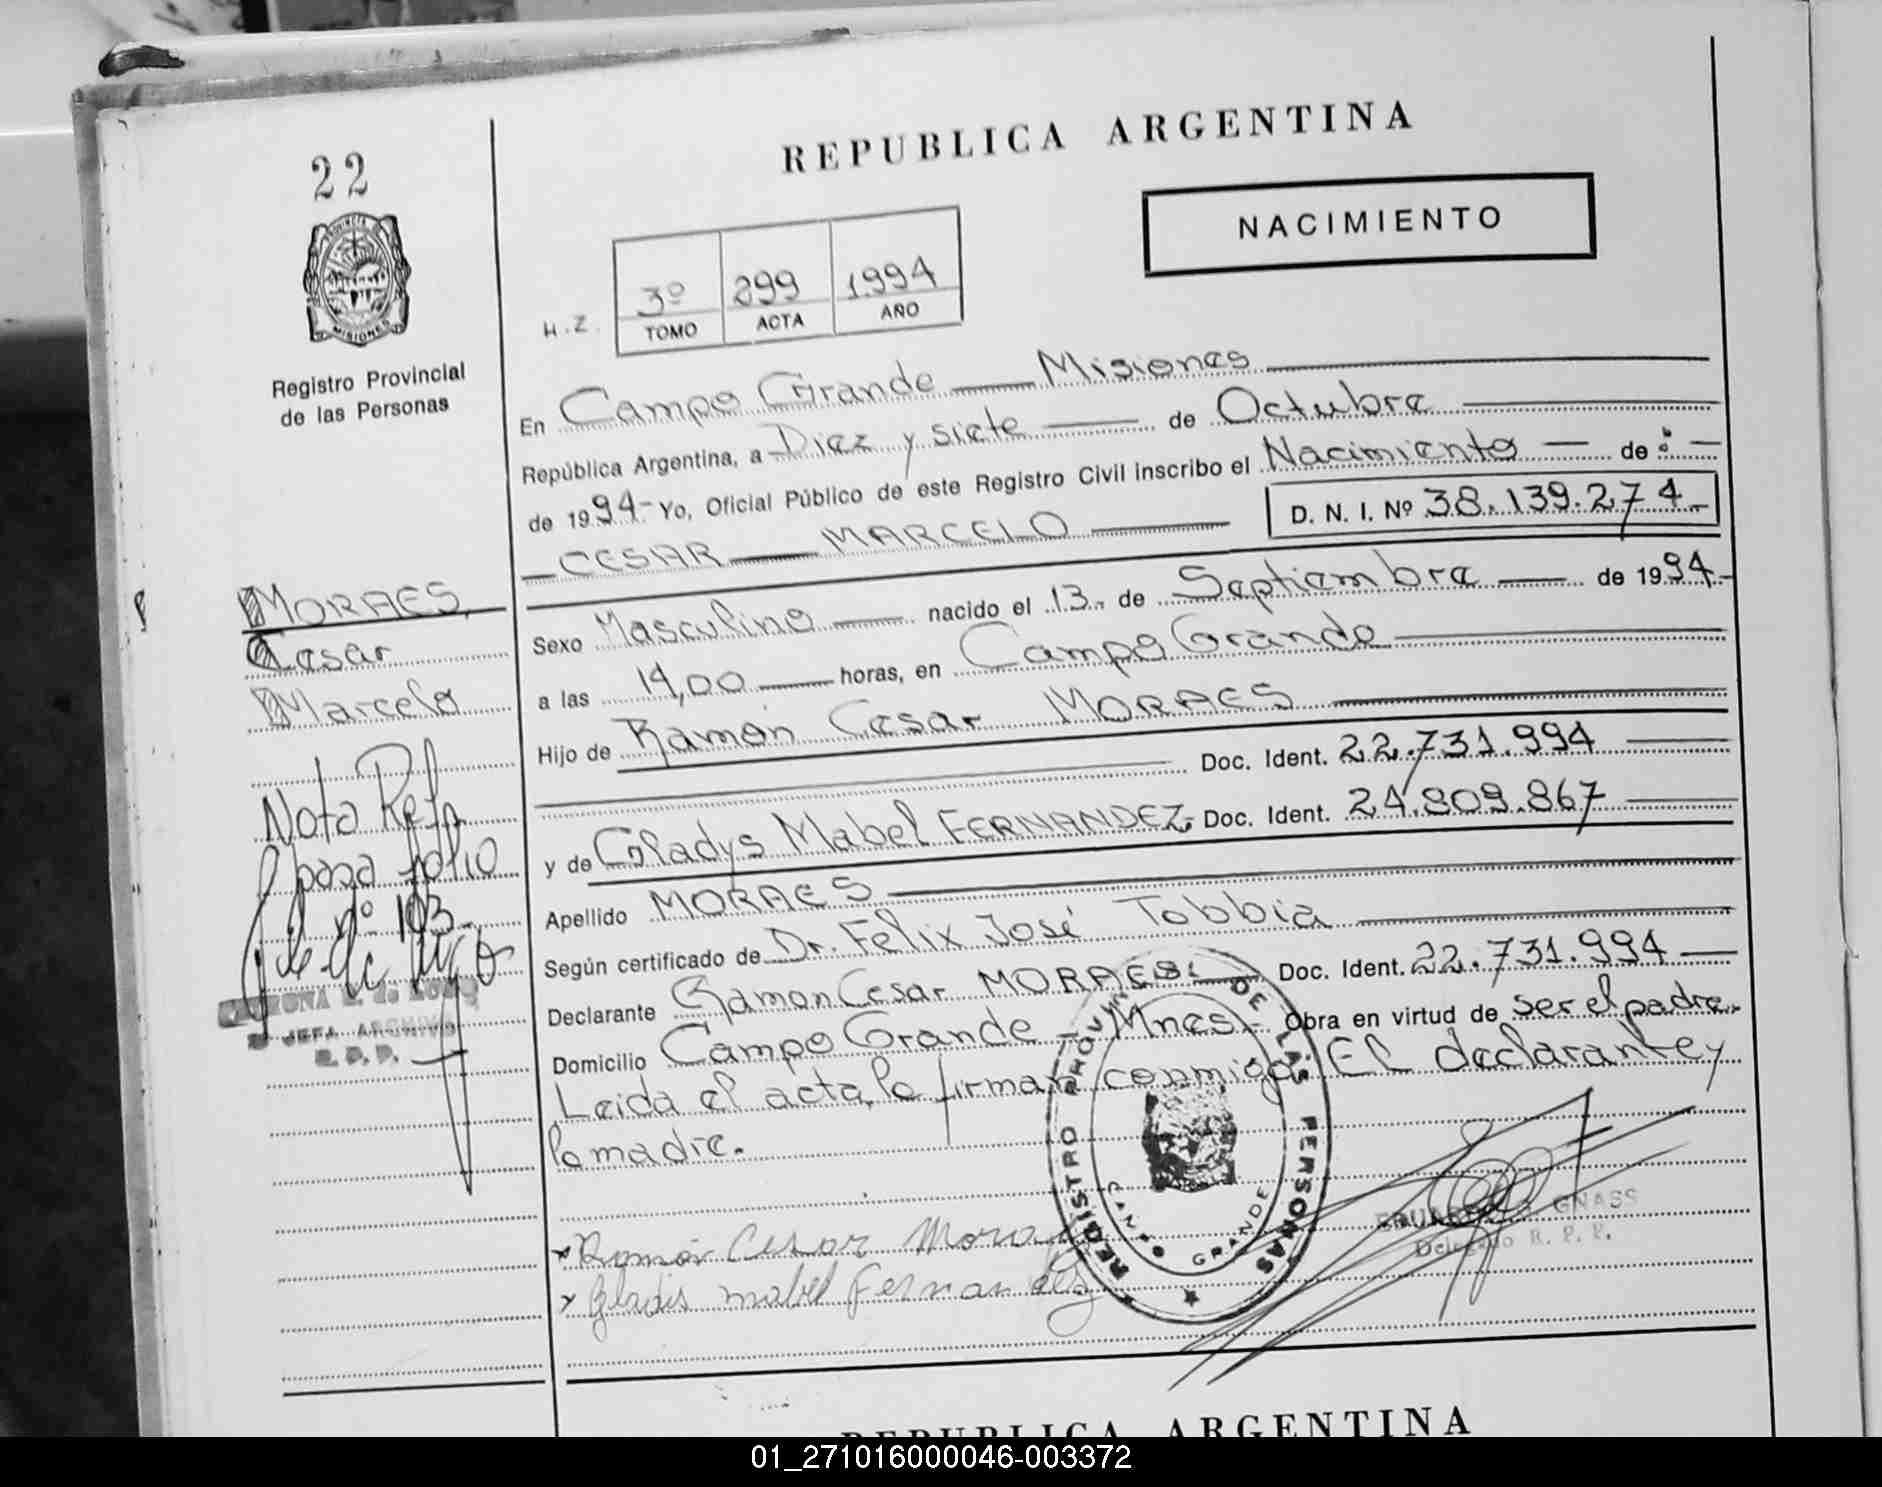 REPUBLICA ARGENTINA
22
NACIMIENTO
3º 299 1994
H.Z. TOMO ACTA AÑO
Registro Provincial
de las Personas
En Campo Grande — Misiones
República Argentina, a Diez y siete — de Octubre
de 1994- Yo, Oficial Público de este Registro Civil inscribo el Nacimiento — de :-
CESAR — MARCELO — D. N. I. Nº 38.139.274-
MORAES,
Cesar
Marcelo
Sexo Masculino — nacido el 13.- de Septiembre — de 1994.-
a las 14,00 — horas, en Campo Grande
Hijo de Ramón Cesar MORAES
Doc. Ident. 22.731.994
y de Gladys Mabel FERNANDEZ- Doc. Ident. 24.809.867
Apellido MORAES
Según certificado de Dr. Felix José Tobbia
Declarante Ramon Cesar MORAES.- Doc. Ident. 22.731.994
Domicilio Campo Grande - Mnes.- Obra en virtud de ser el padre.
Leida el acta, la firman conmigo El declarante y
la madre.
Nota Refa
pasa folio
nº 193
JEFA ARCHIVO
R.P.P.
REGISTRO PROVINC. DE LAS PERSONAS
CAMPO GRANDE
Ramón Cesar Moraes
Gladis mabel Fernandez
EDUARDO GNASS
Delegado R. P. P.
REPUBLICA ARGENTINA
01_271016000046-003372